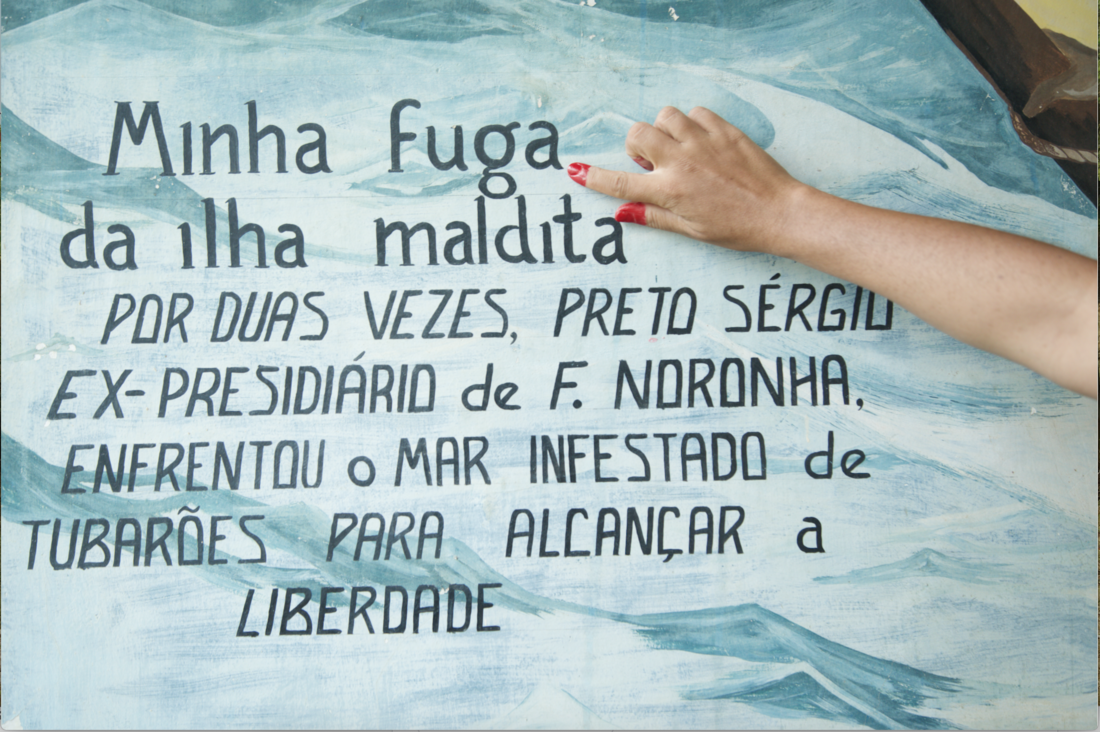 Minha fuga
da ilha maldita
POR DUAS VEZES, PRETO SÉRGIO
EX-PRESIDIÁRIO de F. NORONHA,
ENFRENTOU o MAR INFESTADO de
TUBARÕES PARA ALCANÇAR a
LIBERDADE